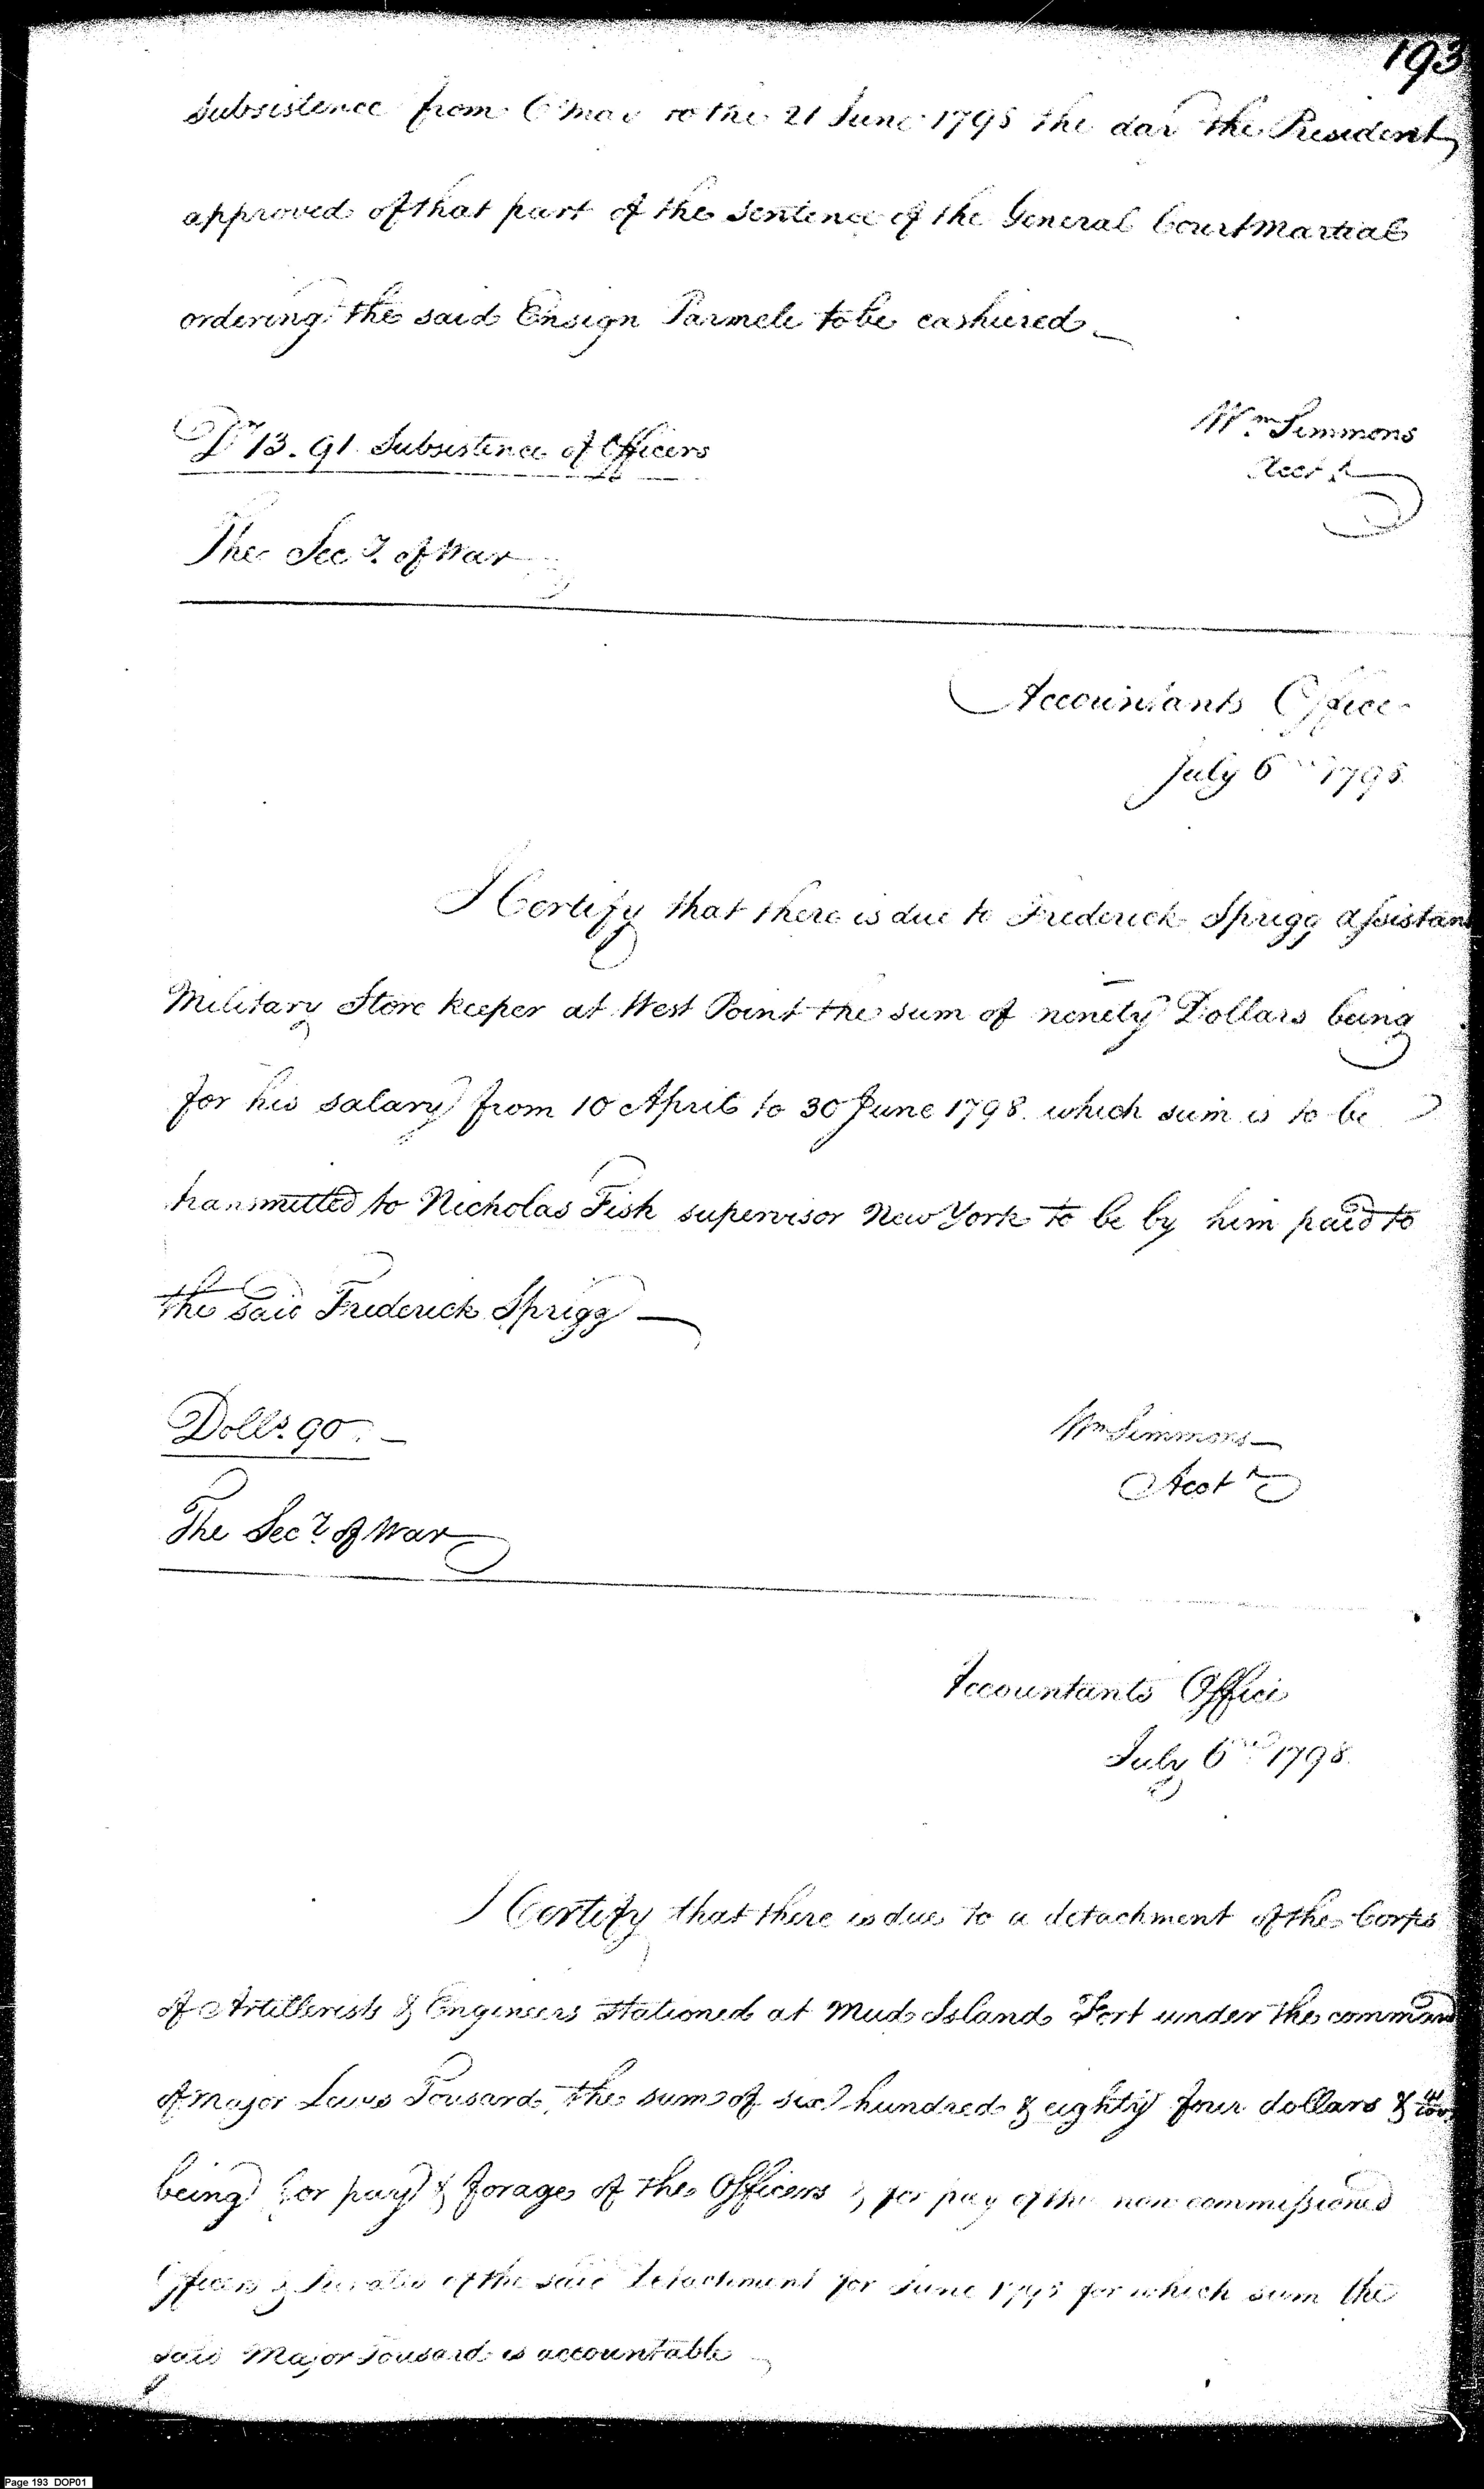 193
Subsistence from 6 May to the 21 June 1798 the day the President
approved of that part of the sentence of the General Court Martial
ordering the said Ensign Parmele to be cashiered
Drs 13.91 Subsistence of Officers
Wm Simmons
Acct
The Secy. of War
Accountants Office
July 6th 1798
I Certify that there is due to Frederick Sprigg assistant
Military Store keeper at West Point the sum of ninety Dollars being
for his salary from 10 April to 30 June 1798. which sum is to be
transmitted to Nicholas Fish supervisor New York to be by him paid to
the said Frederick Sprigg —
Dolls. 90. —
Wm Simmons —
Acct
The Secy. of War
Accountants Office
July 6th 1798.
I Certify that there is due to a detachment of the Corps
of Artillerists & Engineers stationed at Mud Island Fort under the command
of Major Lewis Tousard, the sum of six hundred & eighty four dollars &
being for pay & forage of the Officers & for pay of the non commissioned
Officers & Privates of the said Detachment for June 1798 for which sum the
said Major Tousard is accountable
Page 193 DOP01